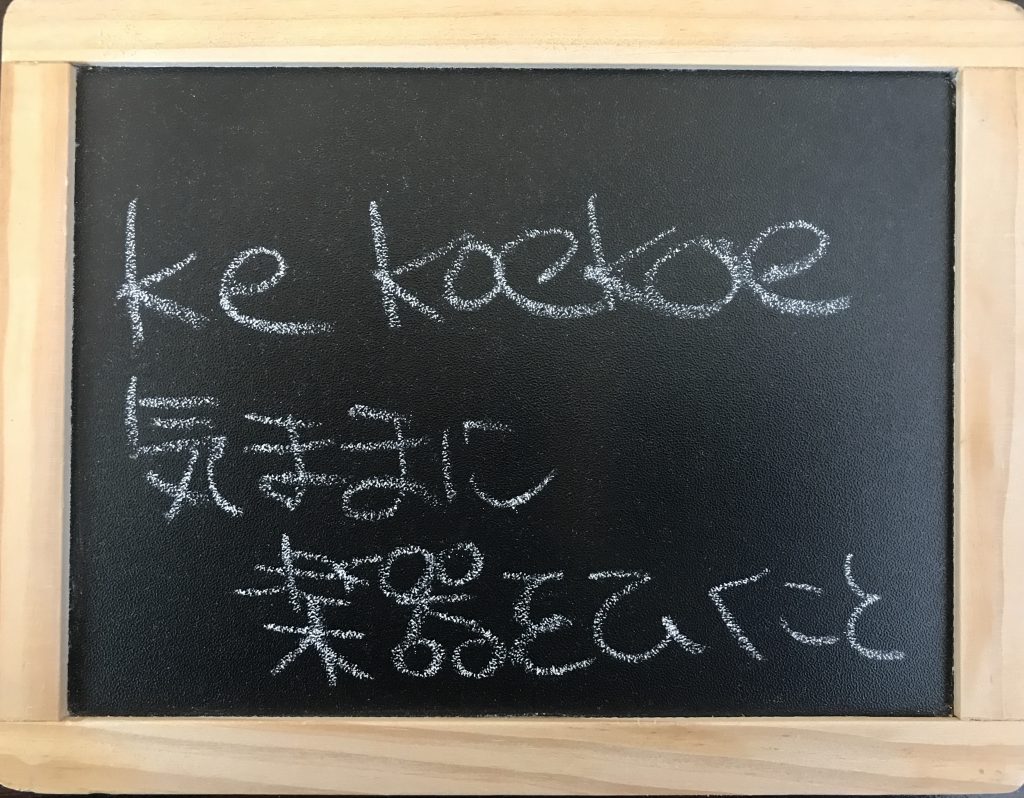 ke koekoe
気ままに
楽器をひくこと